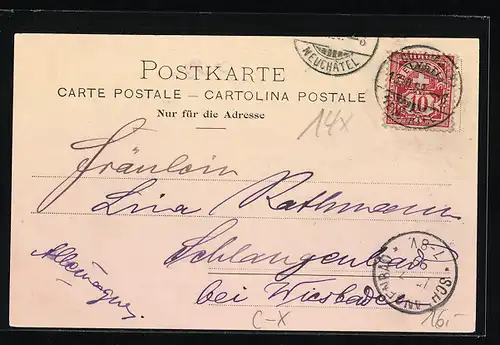 NEUCHÂTEL
POSTKARTE
CARTE POSTALE — CARTOLINA POSTALE
Nur für die Adresse
14x
10
Fräulein
Lina Rathmann
Schlangenbad
Allemagne.
bei Wiesbaden
C-X
16,-